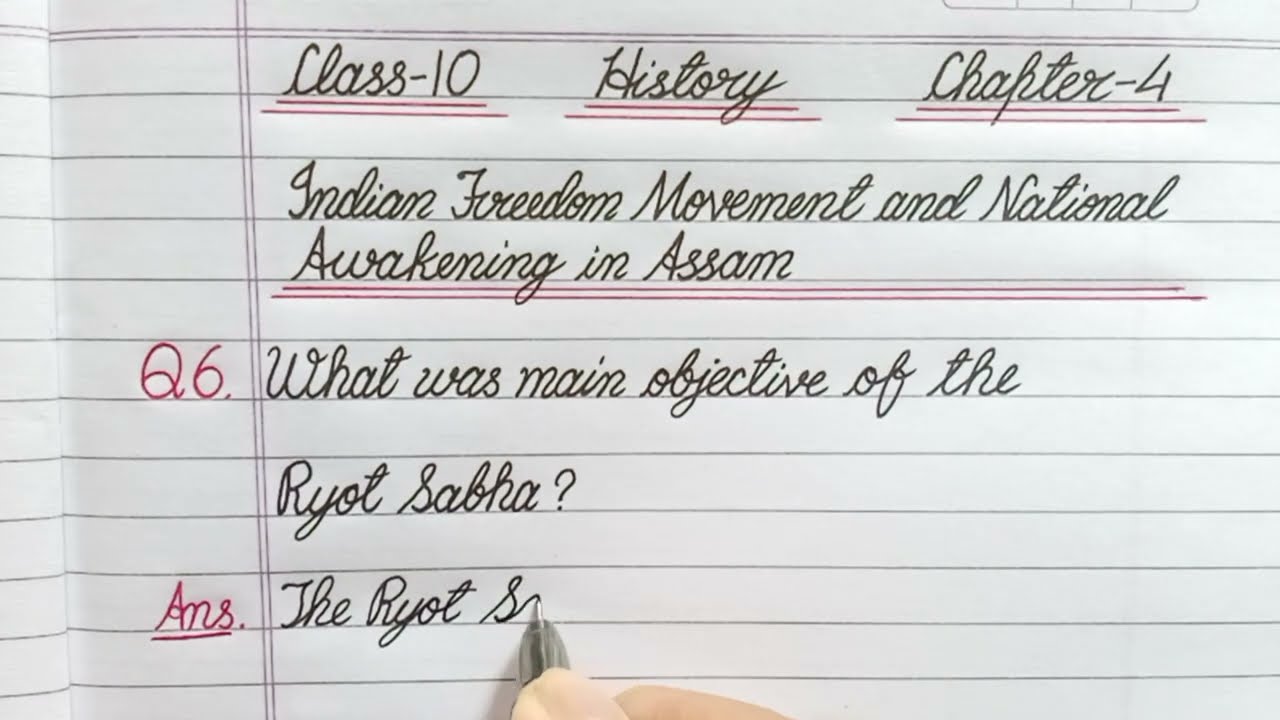 Class-10 History Chapter-4
Indian Freedom Movement and National
Awakening in Assam
Q6. What was main objective of the
Ryot Sabha?
Ans. The Ryot S